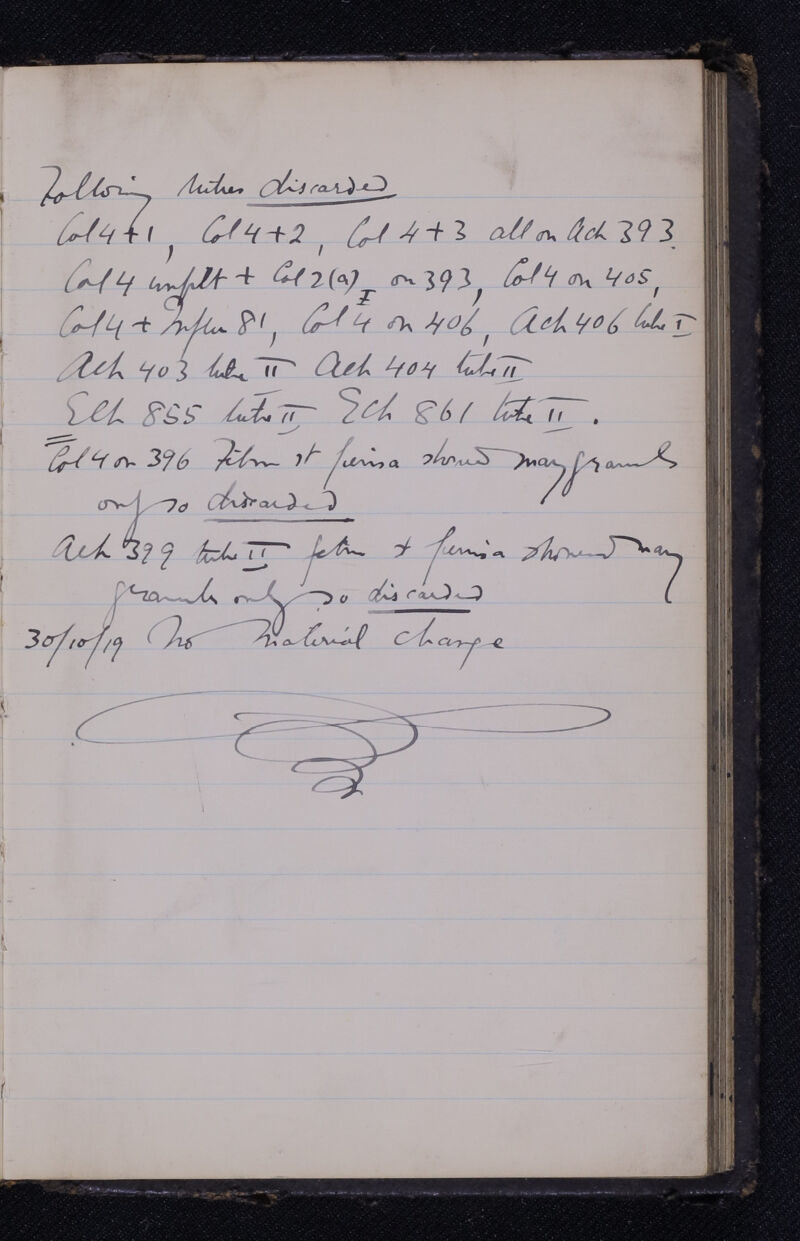 Following tubes discarded
Col 4+1, Col 4+2, Col 4+3 all on Ach 393.
Col 4 unfilt + Col 2(a) I on 393, Col 4 on 405,
Col 4 + Influ 81, Col 4 on 406, Ach 406 tube I
Ach 403 tube II Ach 404 tube II
Ech 855 tube II Ech 861 tube II.
Col 4 on 396 Film st showed many granules
only so discarded
Ach 399 tube II film showed many
granules only so discarded
30/10/19 No material change